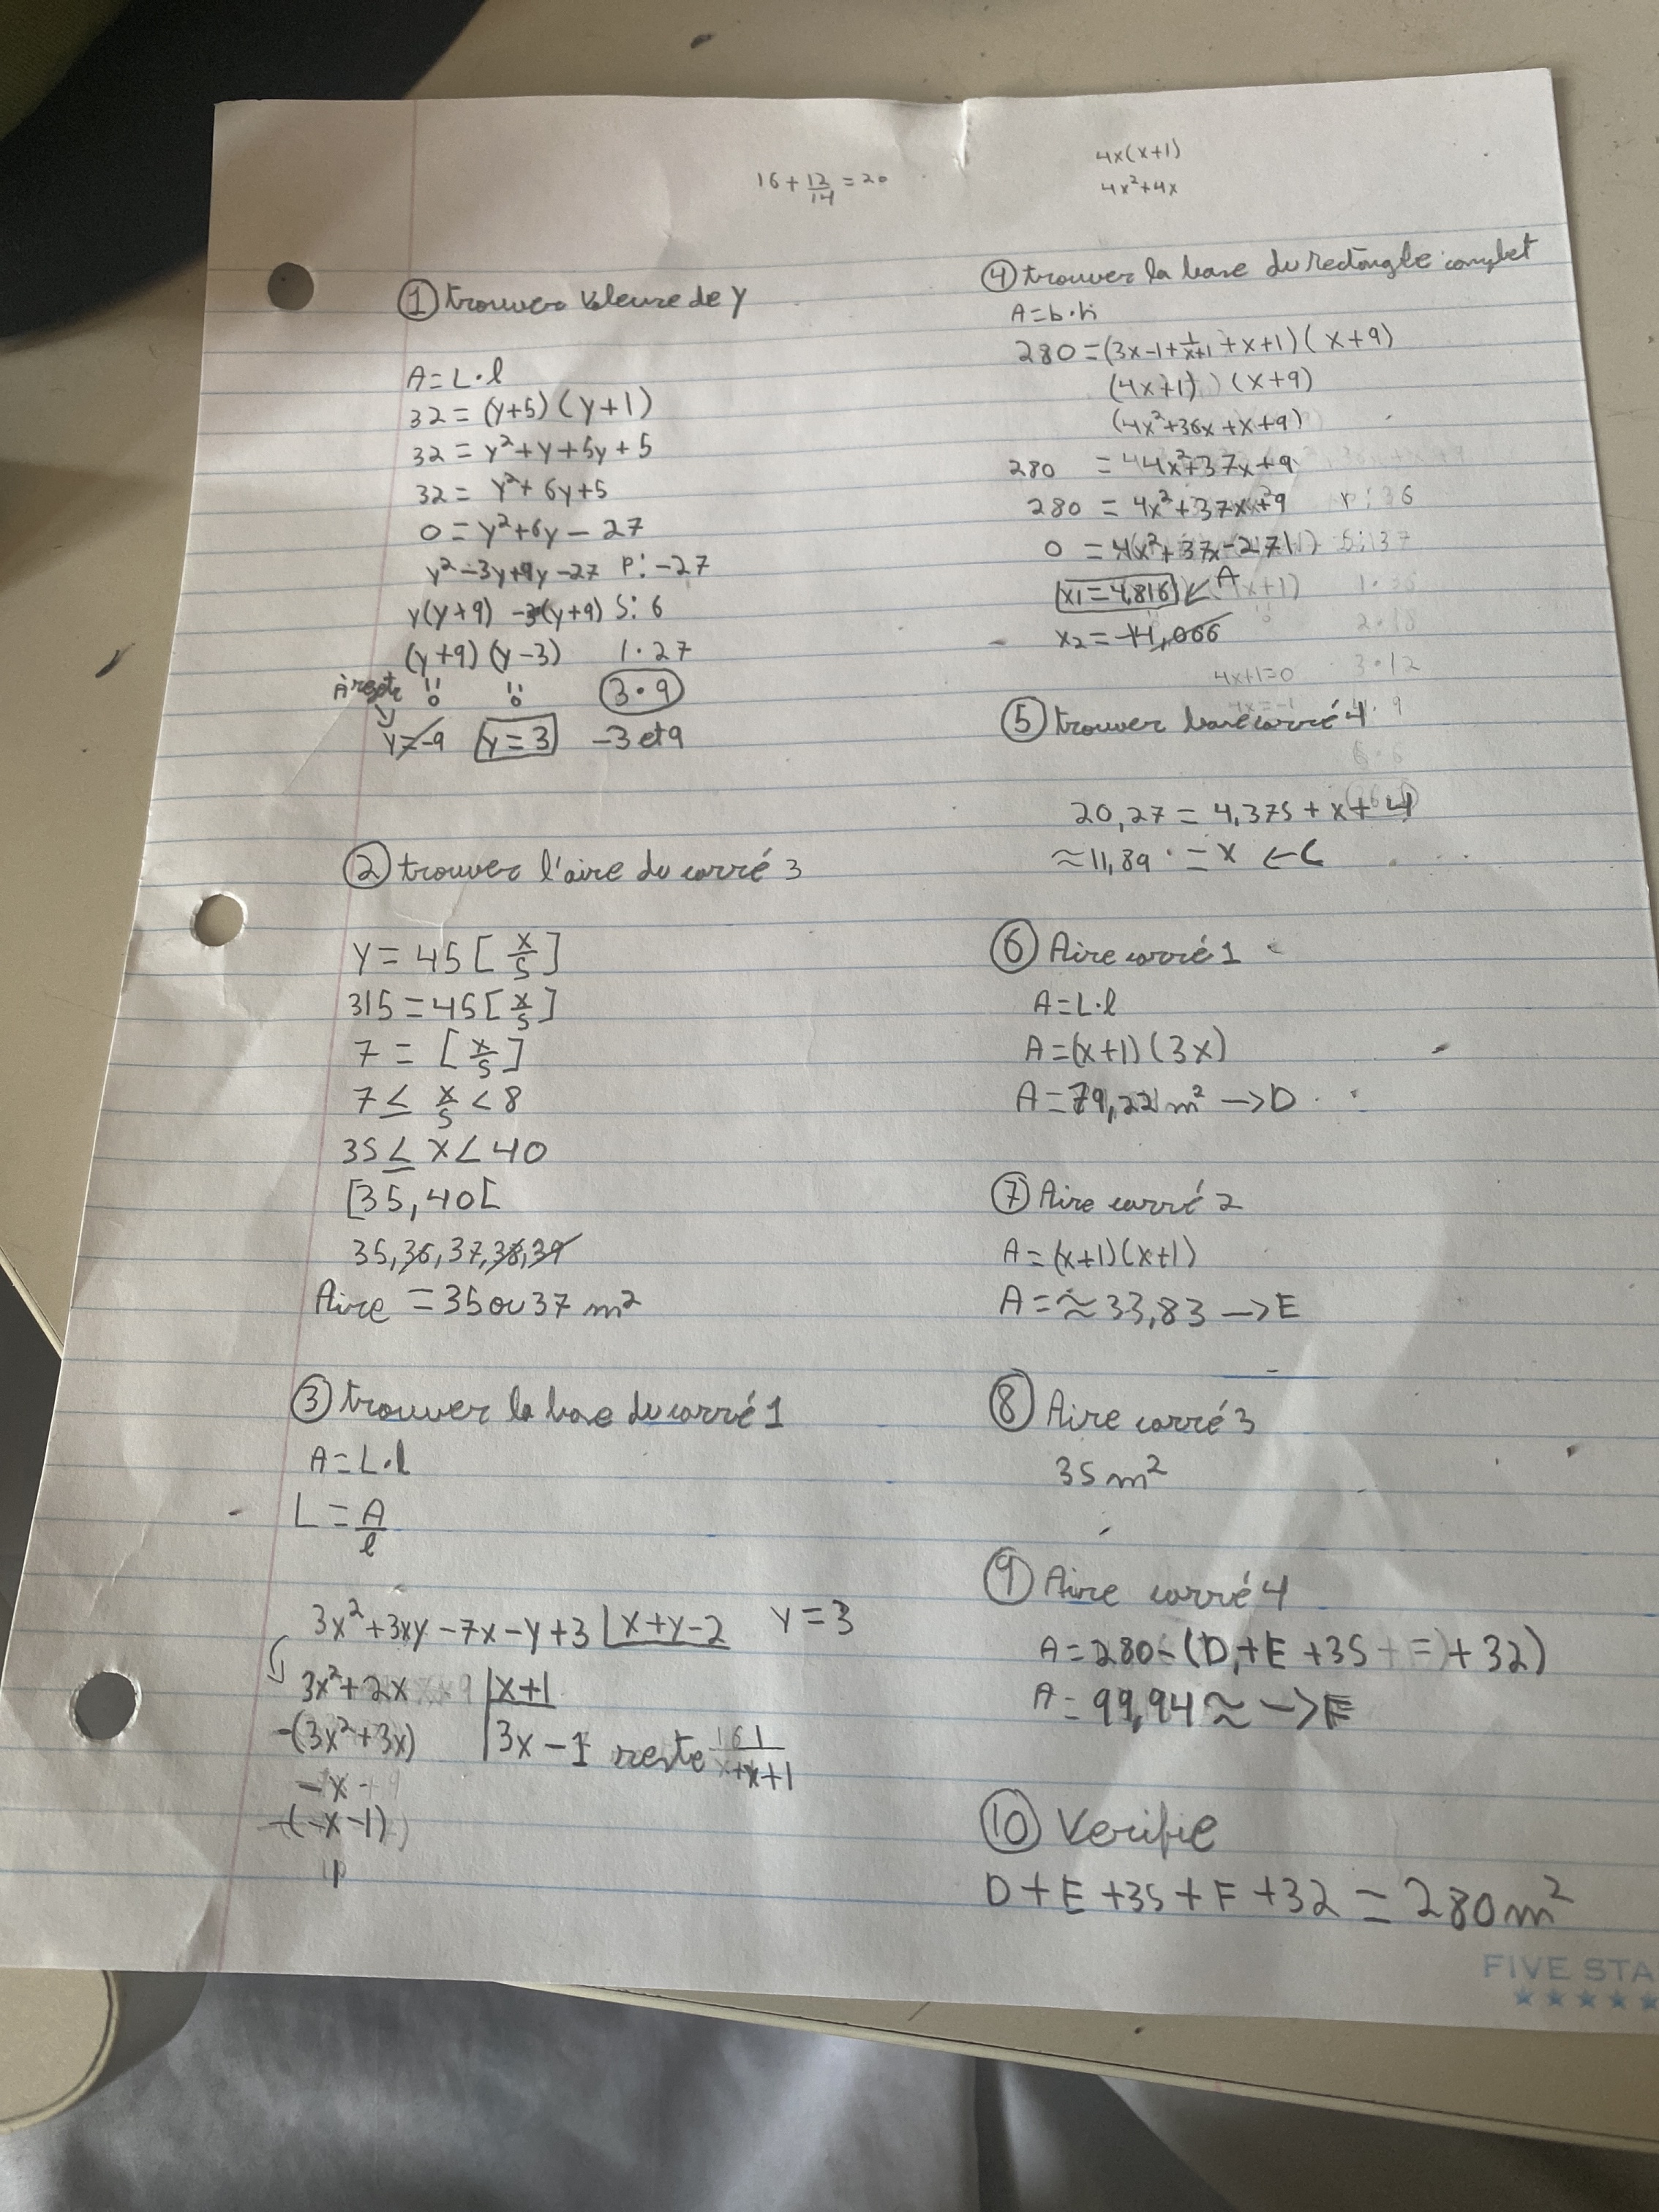 16 + 12/14 = 20
4x(x+1)
4x²+4x
① trouver valeure de y
A = L·l
32 = (y+5)(y+1)
32 = y²+y+5y+5
32 = y²+6y+5
0 = y²+6y-27
y²-3y+9y-27 P: -27
y(y+9) -3(y+9) S: 6
(y+9)(y-3) 1·27
À rejeter 0 0 3·9
y=-9 y=3 -3 et 9
② trouver l'aire du carré 3
y = 45[x/5]
315 = 45[x/5]
7 = [x/5]
7 ≤ x/5 < 8
35 ≤ x < 40
[35, 40[
35, 36, 37, 38, 39
Aire = 35 ou 37 m²
③ trouver la base du carré 1
A = L·l
L = A/l
3x²+3xy-7x-y+3 |x+y-2 y=3
3x²+2x |x+1
-(3x²+3x) |3x-1 reste 1/x+1
-x
-(-x-1)
④ trouver la base du rectangle complet
A = b·h
280 = (3x-1+1/x+1+x+1)(x+9)
(4x+1)(x+9)
(4x²+36x+x+9)
280 = 4x²+37x+9
280 = 4x²+37x+9 P: 36
0 = 4x²+37x-271 S: 37
x1=4,816 ← A (4x+1) 1·36
x2=-14,066 2·18
4x+1=0 3·12
4x=-1 4·9
⑤ trouver base carré 4
6·6
20,27 = 4,375 + x + 4
≈11,89 = x ← C
⑥ Aire carré 1
A = L·l
A = (x+1)(3x)
A = 79,22 m² → D
⑦ Aire carré 2
A = (x+1)(x+1)
A = ≈33,83 → E
⑧ Aire carré 3
35 m²
⑨ Aire carré 4
A = 280 - (D+E+35+32)
A = 99,94 ≈ → F
⑩ Verifie
D+E+35+F+32 = 280 m²
FIVE STA